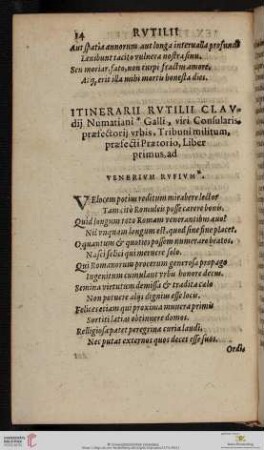 14 RVTILII
Aut spatia annorum, aut longa interualla profundæ
Lenibunt tacito vulnera nostra sinu.
Seu moriar fato, non turpi fractus amore,
Atq; erit illa mihi mortis honesta dies.
ITINERARII RVTILII CLAV-
dij Numatiani * Galli, viri Consularis,
præfectorij vrbis, Tribuni militum,
præfecti Prætorio, Liber
primus, ad
VENERIVM RVFIVM*.
VElocem potius reditum mirabere lector
Tam citò Romuleis posse carere bonis.
Quid longum toto Romam venerantibus æuo?
Nil vnquam longum est, quod sine fine placet.
O quantum & quoties possum numerare beatos,
Nasci felici qui meruere solo.
Qui Romanorum procerum generosa propago
Ingenitum cumulant vrbis honore decus.
Semina virtutum demissa & tradita cælo
Non potuere alijs dignius esse locis.
Felices etiam qui proxima munera primis
Sortiti latias obtinuere domos.
Relligiosa patet peregrinæ curia laudi,
Nec putat externos quos decet esse suos.
Ordi-
UNIVERSITÄTS-
BIBLIOTHEK
HEIDELBERG
© Universitätsbibliothek Heidelberg